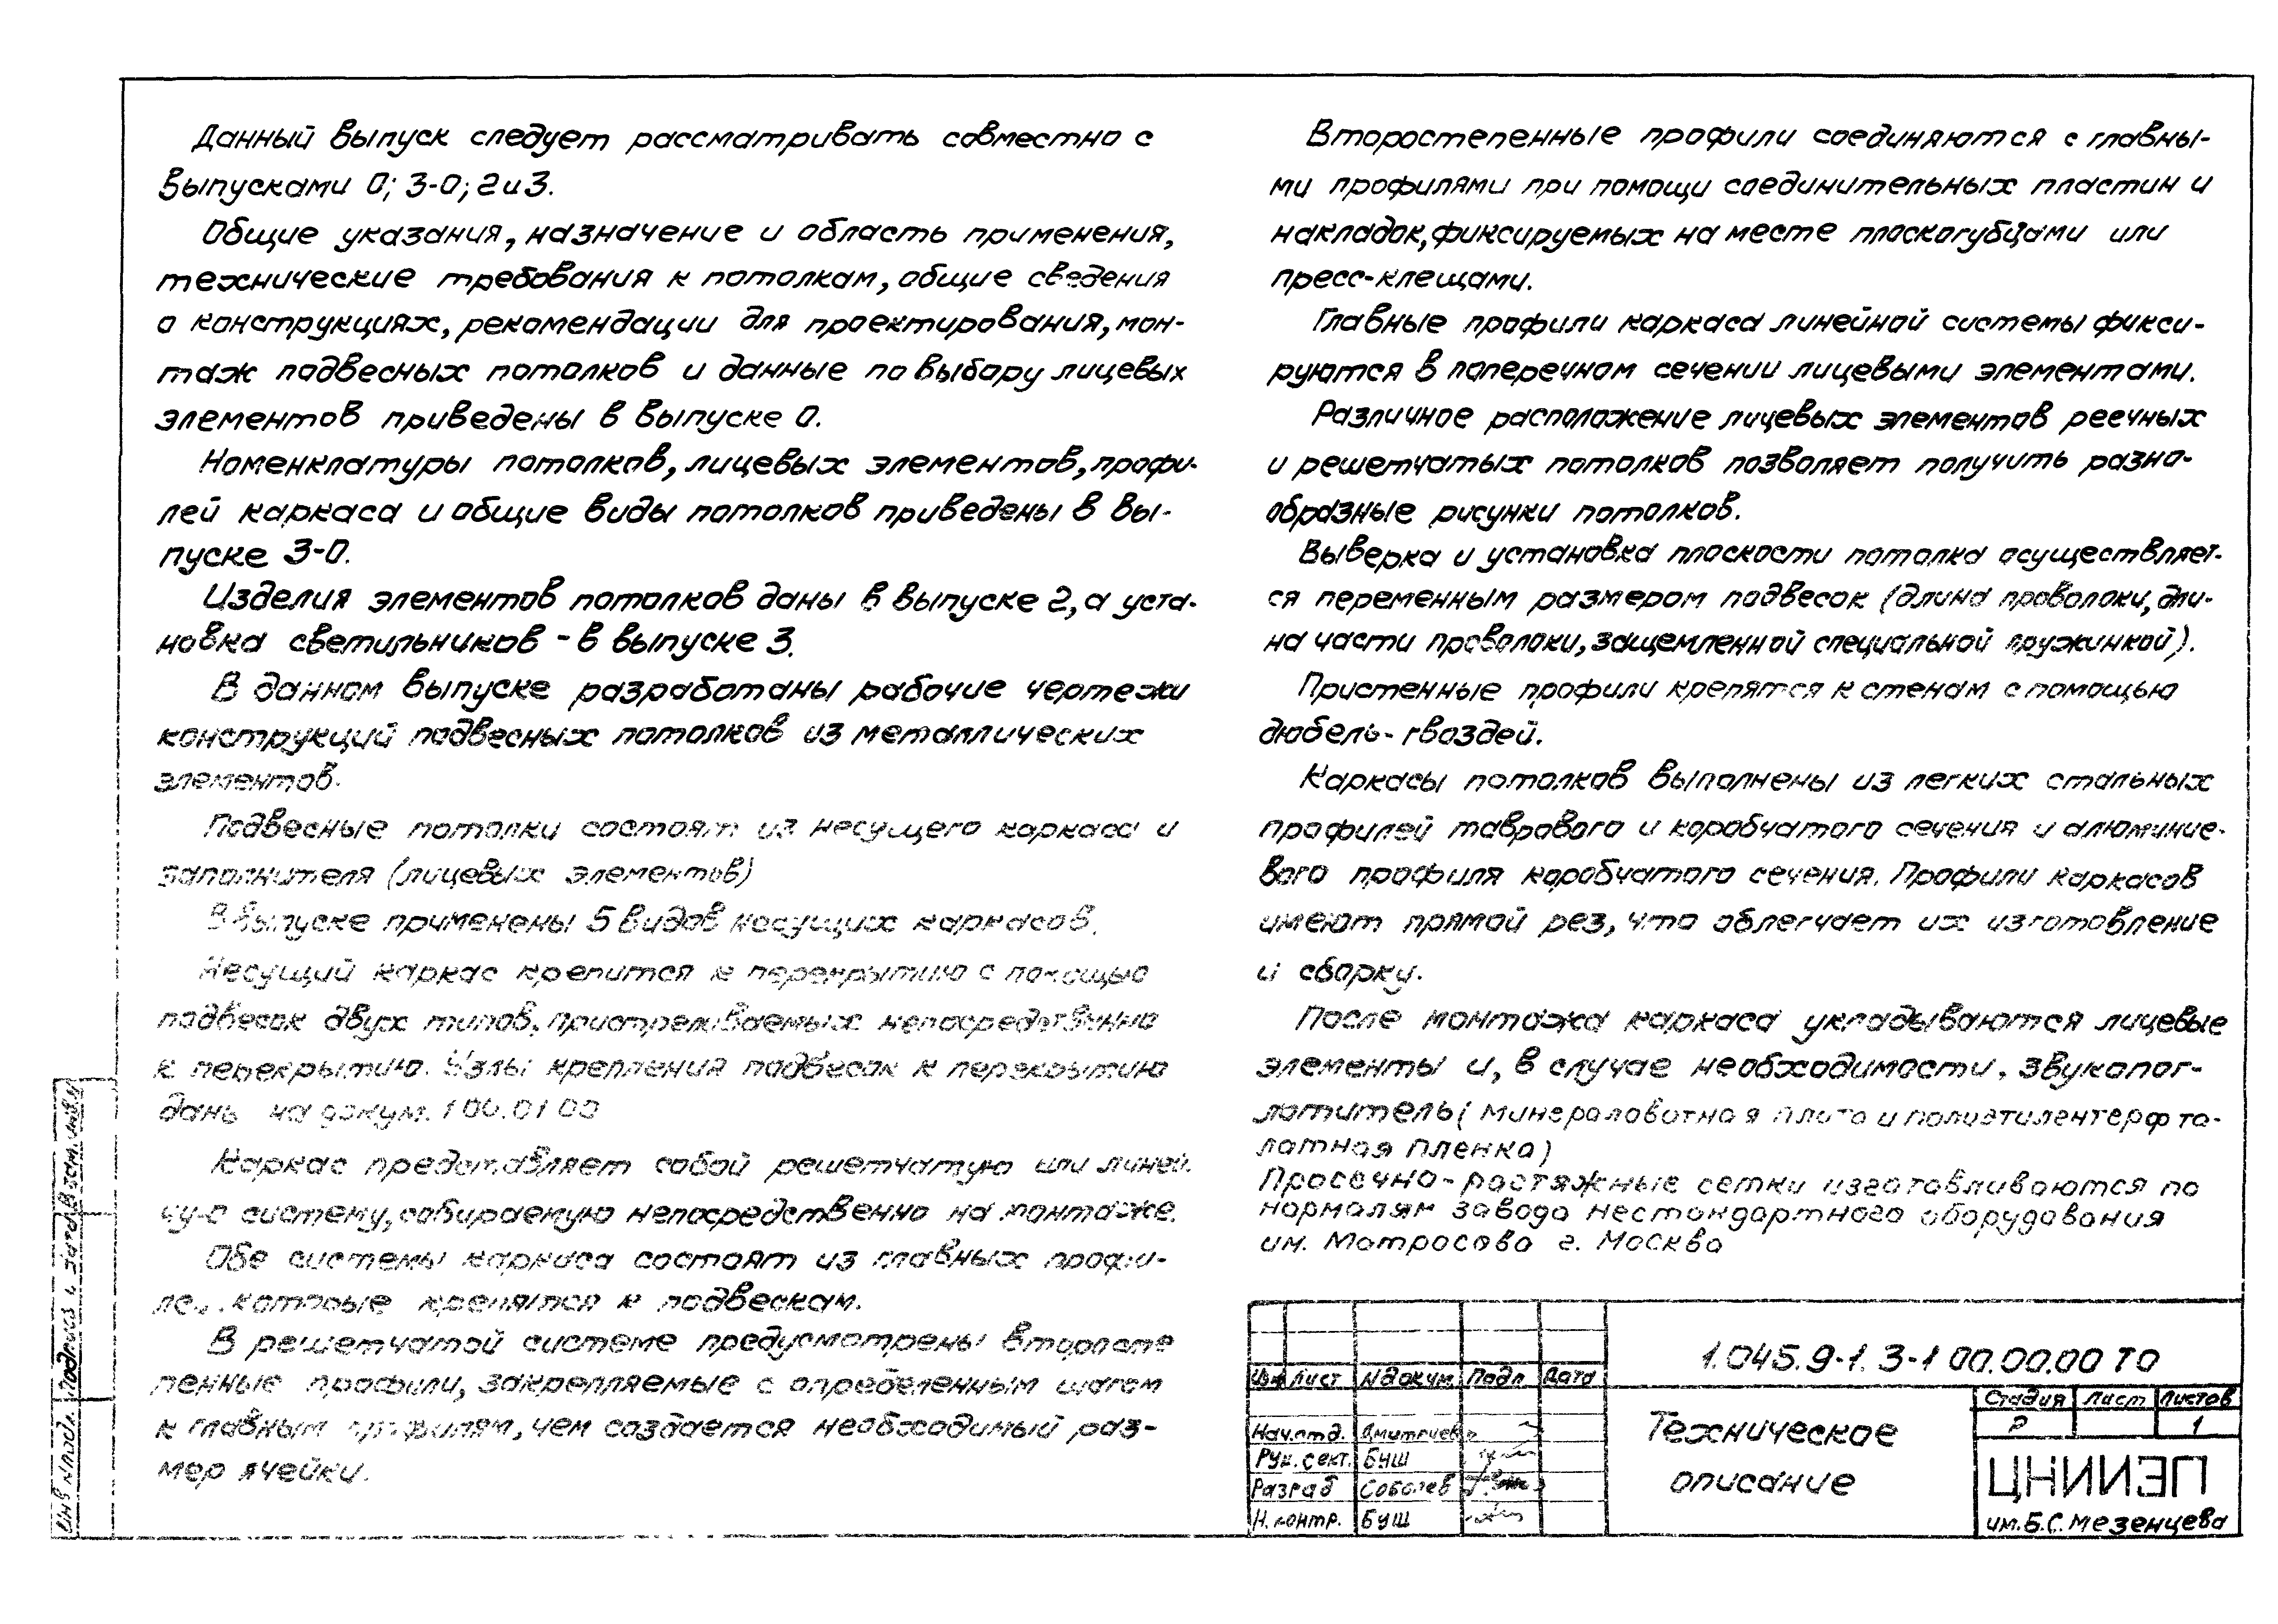 Данный выпуск следует рассматривать совместно с
выпусками 0; 3-0; 2 и 3.
Общие указания, назначение и область применения,
технические требования к потолкам, общие сведения
о конструкциях, рекомендации для проектирования, мон-
таж подвесных потолков и данные по выбору лицевых
элементов приведены в выпуске 0.
Номенклатуры потолков, лицевых элементов, профи-
лей каркаса и общие виды потолков приведены в вы-
пуске 3-0.
Изделия элементов потолков даны в выпуске 2, а уста-
новка светильников - в выпуске 3.
В данном выпуске разработаны рабочие чертежи
конструкций подвесных потолков из металлических
элементов.
Подвесные потолки состоят из несущего каркаса и
заполнителя (лицевых элементов)
В выпуске применены 5 видов несущих каркасов.
Несущий каркас крепится к перекрытию с помощью
подвесок двух типов, пристреливаемых непосредственно
к перекрытию. Узлы крепления подвесок к перекрытию
даны на докум. 100.01 00
Каркас представляет собой решетчатую или линей-
ную систему, собираемую непосредственно на монтаже.
Обе системы каркаса состоят из главных профи-
лей, которые крепятся к подвескам.
В решетчатой системе предусмотрены второсте
пенные профили, закрепляемые с определенным шагом
к главным профилям, чем создается необходимый раз-
мер ячейки.
Второстепенные профили соединяются с главны-
ми профилями при помощи соединительных пластин и
накладок, фиксируемых на месте плоскогубцами или
пресс-клещами.
Главные профили каркаса линейной системы фикси-
руются в поперечном сечении лицевыми элементами.
Различное расположение лицевых элементов реечных
и решетчатых потолков позволяет получить разно-
образные рисунки потолков.
Выверка и установка плоскости потолка осуществляет-
ся переменным размером подвесок (длина проволоки, дли-
на части проволоки, защемленной специальной пружинкой).
Пристенные профили крепятся к стенам с помощью
дюбель-гвоздей.
Каркасы потолков выполнены из легких стальных
профилей таврового и коробчатого сечения и алюминие-
вого профиля коробчатого сечения. Профили каркасов
имеют прямой рез, что облегчает их изготовление
и сборку.
После монтажа каркаса укладываются лицевые
элементы и, в случае необходимости, звукопог-
лотитель (минераловатная плита и полиэтилентерфта-
латная пленка)
Просечно-растяжные сетки изготавливаются по
нормалям завода нестандартного оборудования
им. Матросова г. Москва
1.045.9-1. 3-1 00.00.00 ТО
Изм Лист N докум. Подп Дата
Нач.отд. Дмитриев
Рук. сект. Буш
Разраб Соболев
Н.контр. Буш
Техническое
описание
Стадия Лист Листов
Р 1
ЦНИИЭП
им. Б.С. Мезенцева
Инв N подл. Подпись и дата Взам. инв. N